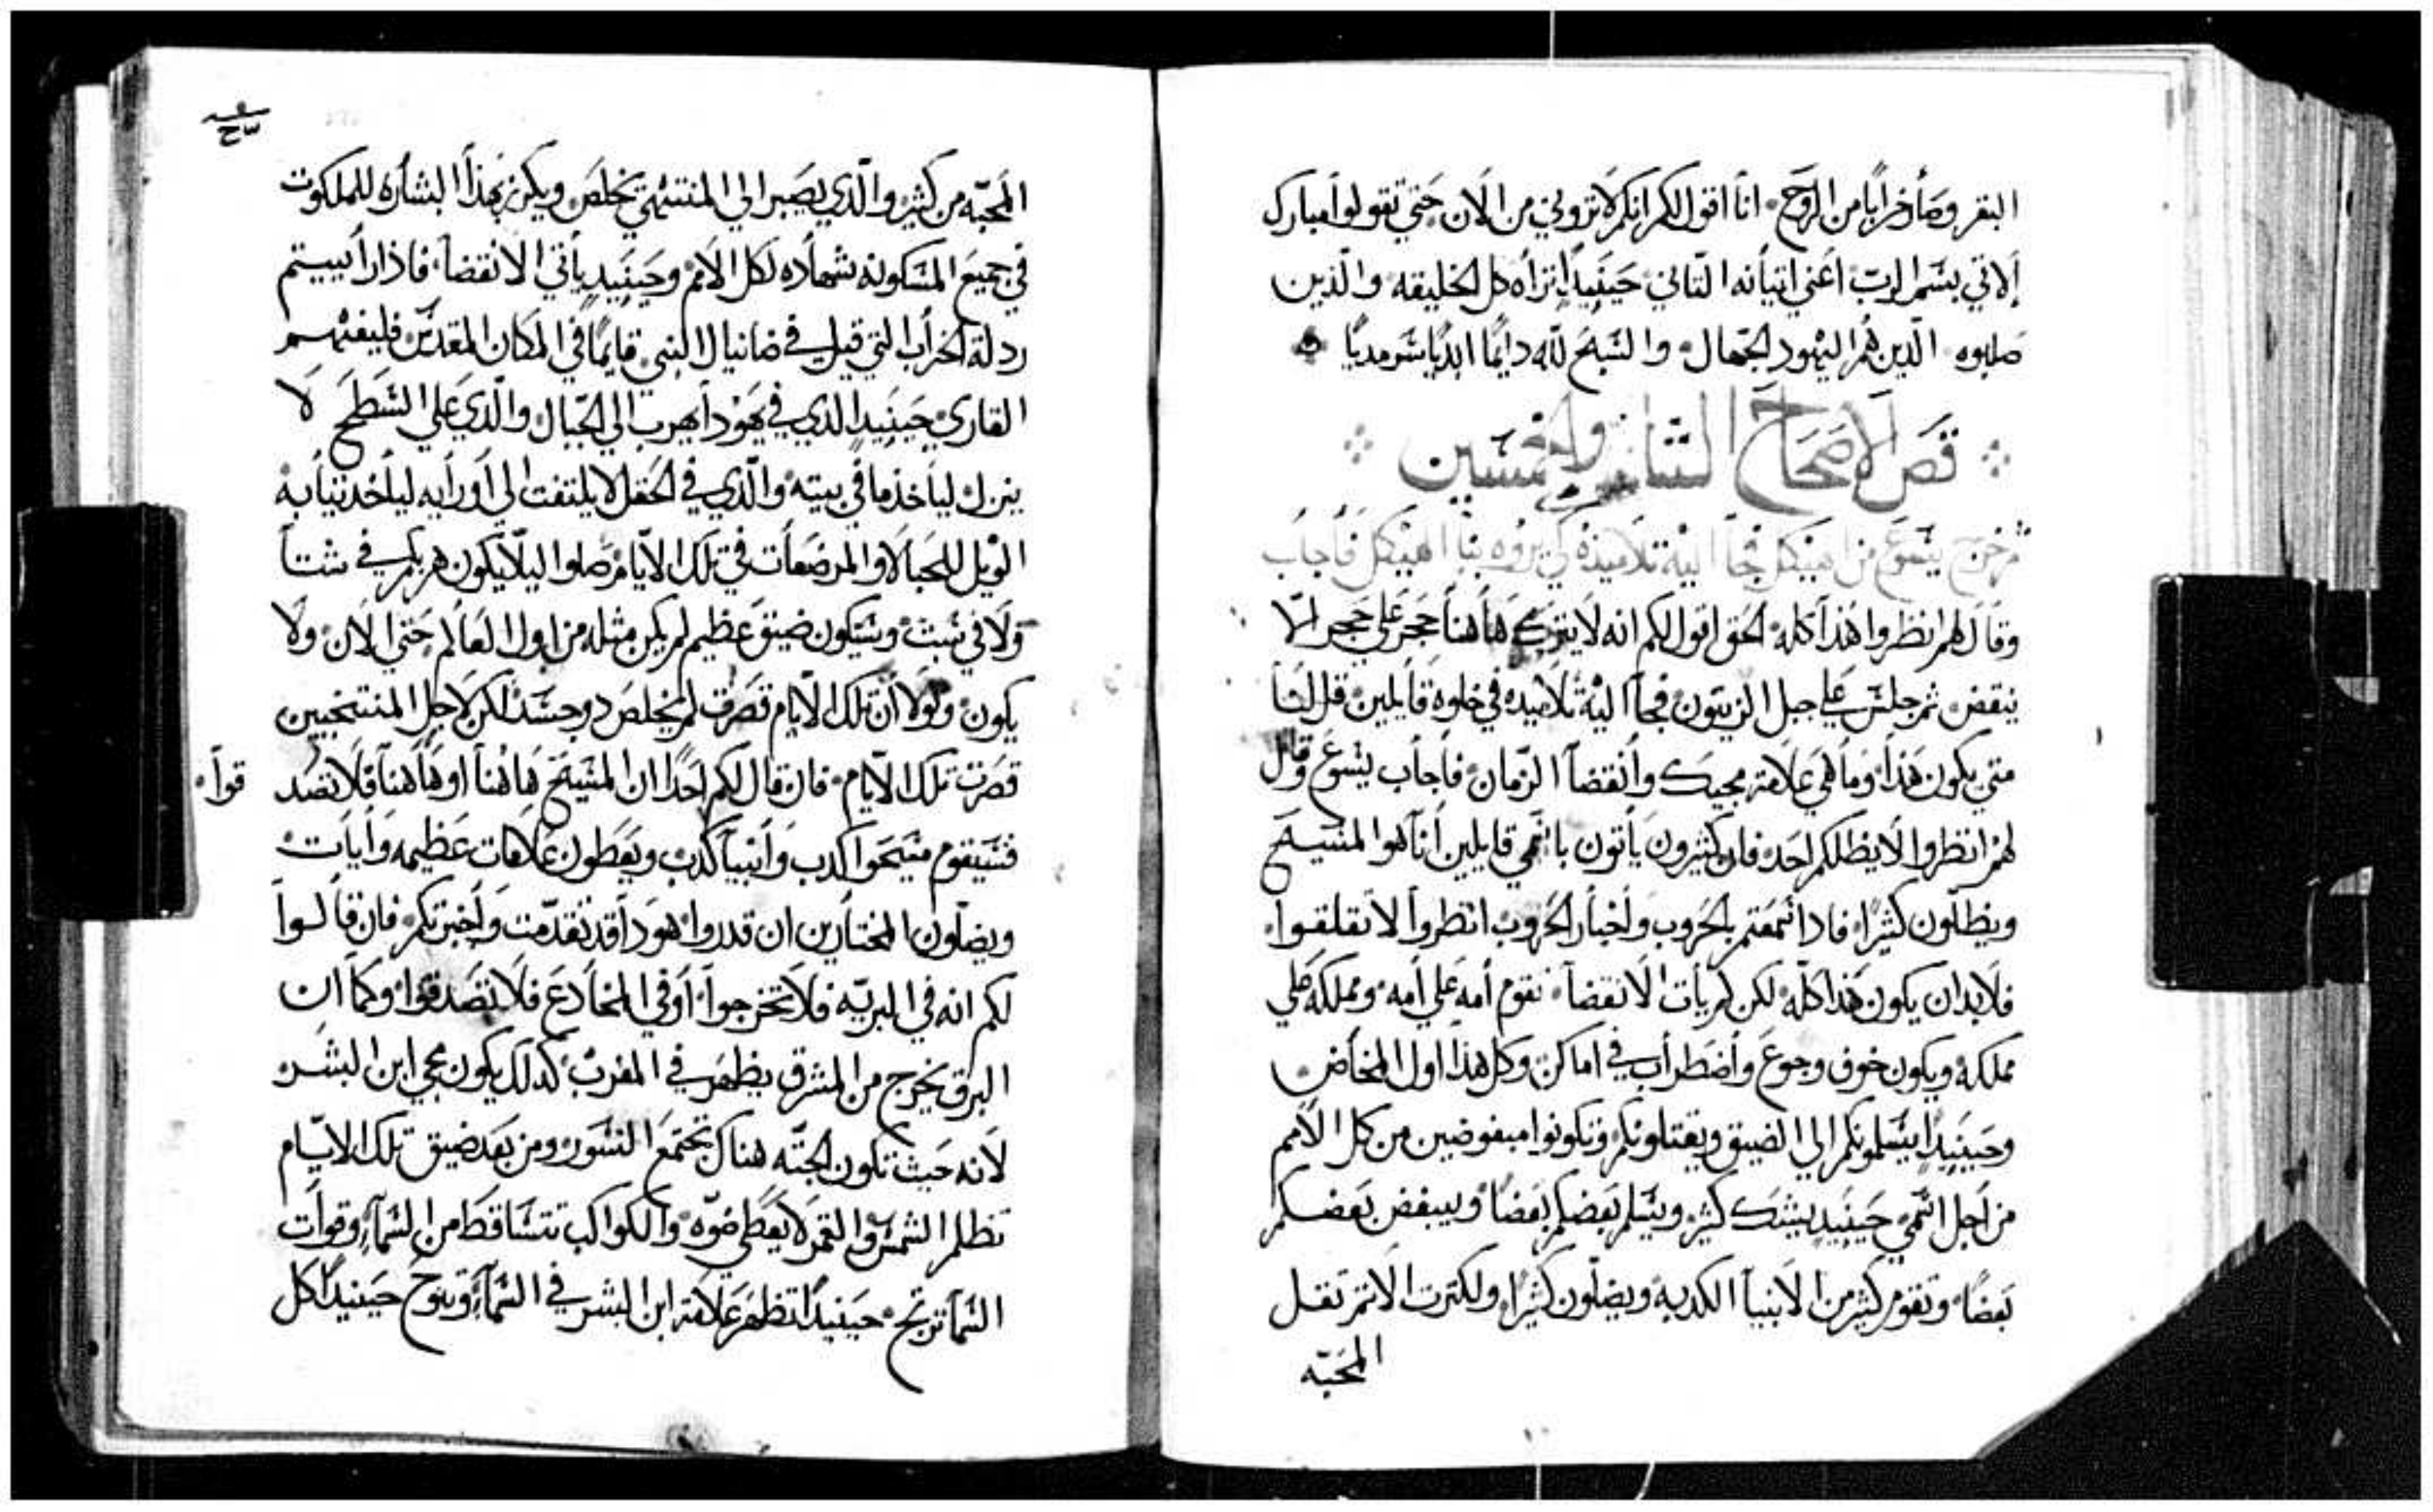 البقر وصأر خرابًا من الروح. انا اقول لكم انكم لا تروني من الان حتي تقولوا مبارك
الاتي بسم الرب اعني اتيانه التاني حينيدٍ تراه كل الخليقه والذين
صلبوه الذين هم اليهود الجهال والسبح لله دايمًا ابديًا سرمديًا
قص الاصحاح التاني والخمسين
ثم خرج يسوع من الهيكل فجا اليه تلاميذه كي يروه بنا الهيكل فاجاب
وقال لهم انظروا هذا كله الحق اقول لكم انه لا يترك هاهنا حجر علي حجر الا
ينقض ثم جلس علي جبل الزيتون فجا اليه تلاميده في خلوه قايلين قل لنا
متي يكون هذا وما هي علامة مجيك وانقضا الزمان فاجاب يسوع وقال
لهم انظروا لا يظلكم احد فان كثيرون يأتون باسمي قايلين انا هوا المسيح
ويظلون كثيرًا فادا سمعتم بالحروب واخبار الحروب انظروا لا تقلقوا
فلا بد ان يكون هذا كله لكن لم يات الانقضا تقوم أمه علي أمه ومملكه علي
مملكه ويكون خوف وجوع واضطراب في اماكن وكل هذا اول المخاض
وحينيدًا يسلمونكم الي الضيق ويقتلونكم وتكونوا مبغوضين من كل الامم
من اجل اسمي حينيدٍ يشك كثير ويسلم بعضكم بعضًا ويبغض بعضكم
بعضًا وتقوم كثير من الانبيا الكدبه ويضلون كثيرًا ولكترت الاتم تقل
المحبه
المحبه من كثير والذي يصبر الي المنتهي يخلص ويكرز بهذا البشاره للملكوت
في جميع المسكونه شهاده لكل الامم وحينيدٍ يأتي الانقضا فاذا رأييتم
ردلة الخراب التي قيل في دانيال النبي قايمًا في المكان المقدس فليفهم
القاري حينيدٍ الذي في يهودا يهرب الي الجبال والذي علي السطح لا
ينزل ليأخذ ما في بيته والذي في الحقل لا يلتفت الي أورايه ليأخد تيابه
الويل للحبالا والمرضعات في تلك الايام صلوا ليلا يكون هربكم في شتا
ولا في سبت وسيكون ضيق عظيم لم يكن مثله من اول العالم حتي الان ولا
يكون ولولا ان تلك الايام قصرت لم يخلص دو جسد لكن لاجل المنتخبين
قصرت تلك الايام فان قال لكم احدًا ان المسيح هاهنا او هاهنا فلا تصد
قوا
فسيقوم مسيحوا كدب وانبيا كدب ويعطون علامات عظيمه وايات
ويضلون المختارين ان قدروا هودا قد تقدمت واخبرتكم فان قالوا
لكم انه في البريه فلا تخرجوا أو في المخادع فلا تصدقوا وكما ان
البرق يخرج من المشرق يظهر في المغرب كدلك يكون مجي ابن البشر
لانه حيث تكون الجته هناك تجتمع النسور ومن بعد ضيق تلك الايام
تظلم الشمس والقمر لا يعطي ضوه والكواكب تتساقط من السماء وقوات
السما ترتج حينيدًا تظهر علامة ابن البشر في السماء وتنوح حينيدًا كل